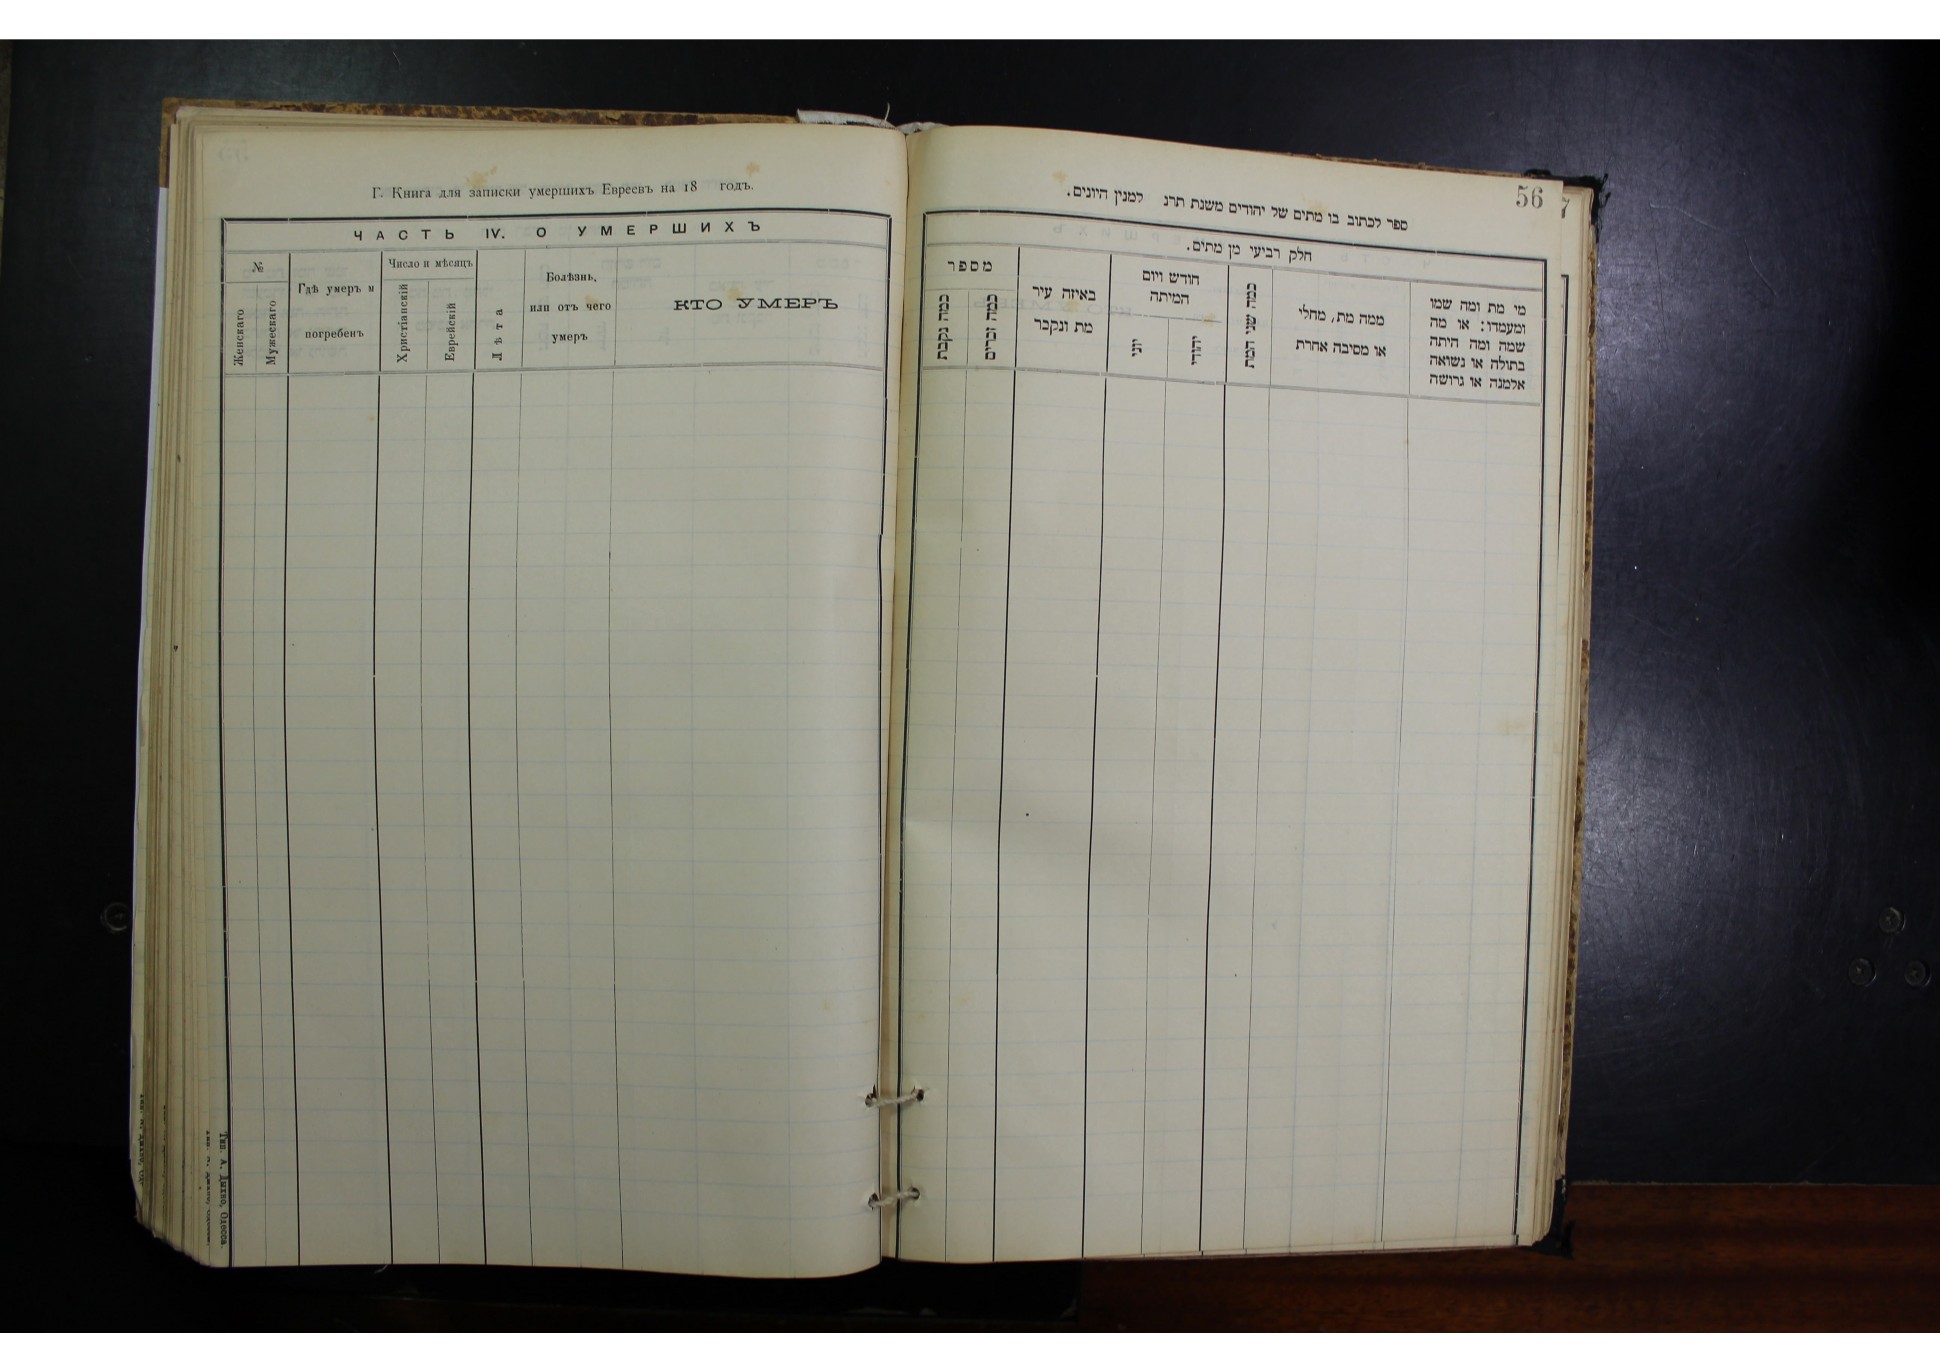 Г. Книга для записки умершихъ Евреевъ на 18 годъ.
ЧАСТЬ IV. О УМЕРШИХЪ
№
Женскаго
Мужескаго
Гдѣ умеръ и
погребенъ
Число и мѣсяцъ
Христіанскій
Еврейскій
Лѣта
Болѣзнь,
или отъ чего
умеръ
КТО УМЕРЪ
Тип. А. Дыхно, Одесса.
56
7
ספר לכתוב בו מתים של יהודים משנת תרנ למנין היונים.
חלק רביעי מן מתים.
מספר
כמה נקבת
כמה זכרים
באיזה עיר
מת ונקבר
חודש ויום
המיתה
יוני
יהודי
כמה שני המת
ממה מת, מחלי
או מסיבה אחרת
מי מת ומה שמו
ומעמדו: או מה
שמה ומה היתה
בתולה או נשואה
אלמנה או גרושה